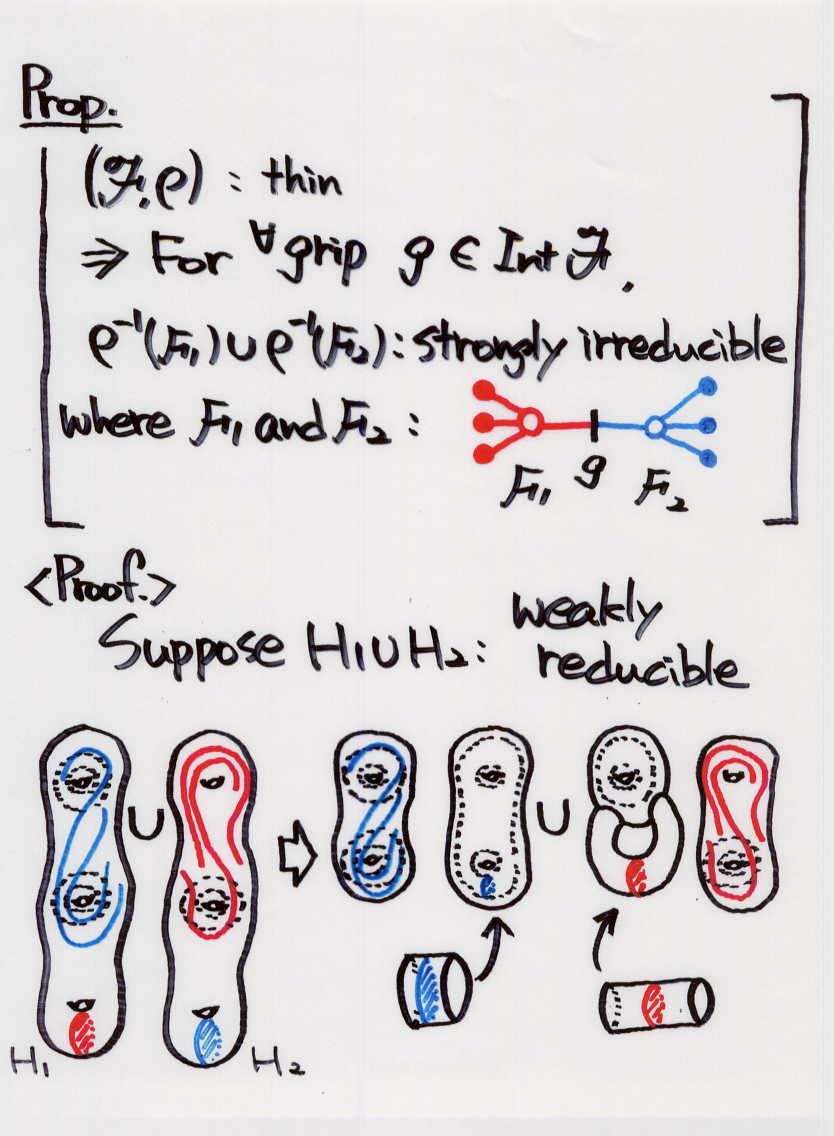 Prop.
(ℱ, ρ) : thin
⇒ For ∀grip g ∈ Int ℱ,
ρ⁻¹(ℱ₁) ∪ ρ⁻¹(ℱ₂) : strongly irreducible
where ℱ₁ and ℱ₂ :
ℱ₁ g ℱ₂
<Proof.>
Suppose H₁∪H₂: weakly
reducible
∪ ⇨ ∪
H₁ H₂